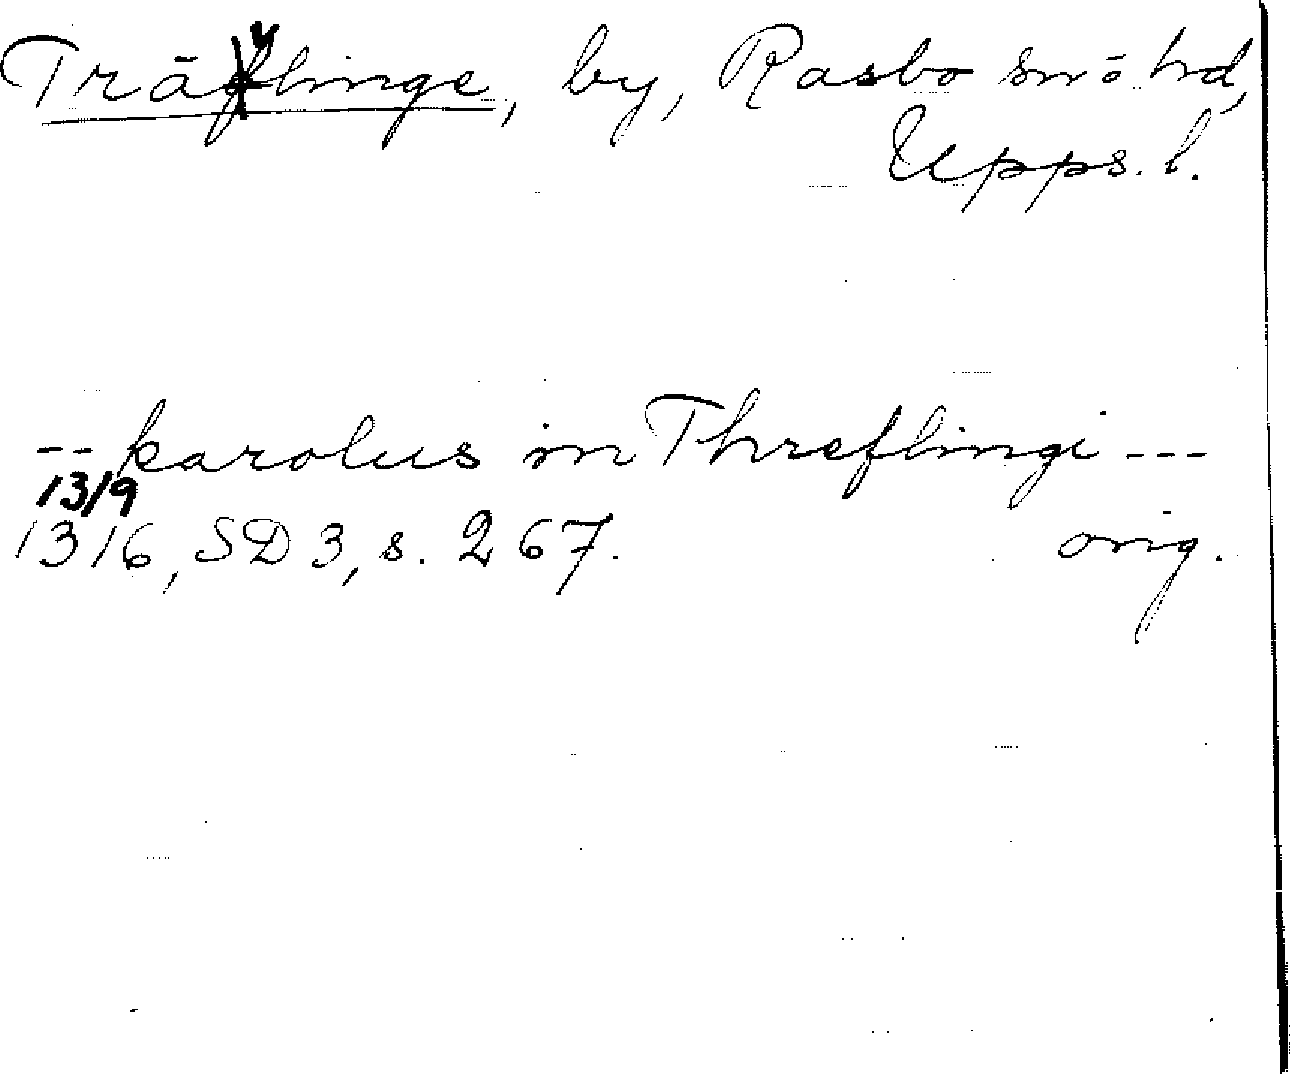 Trävlinge, by, Rasbo sn o hd,
Upps. l.
-- karolus in Threflingi ---
13/9
1316, SD 3, s. 267. orig.